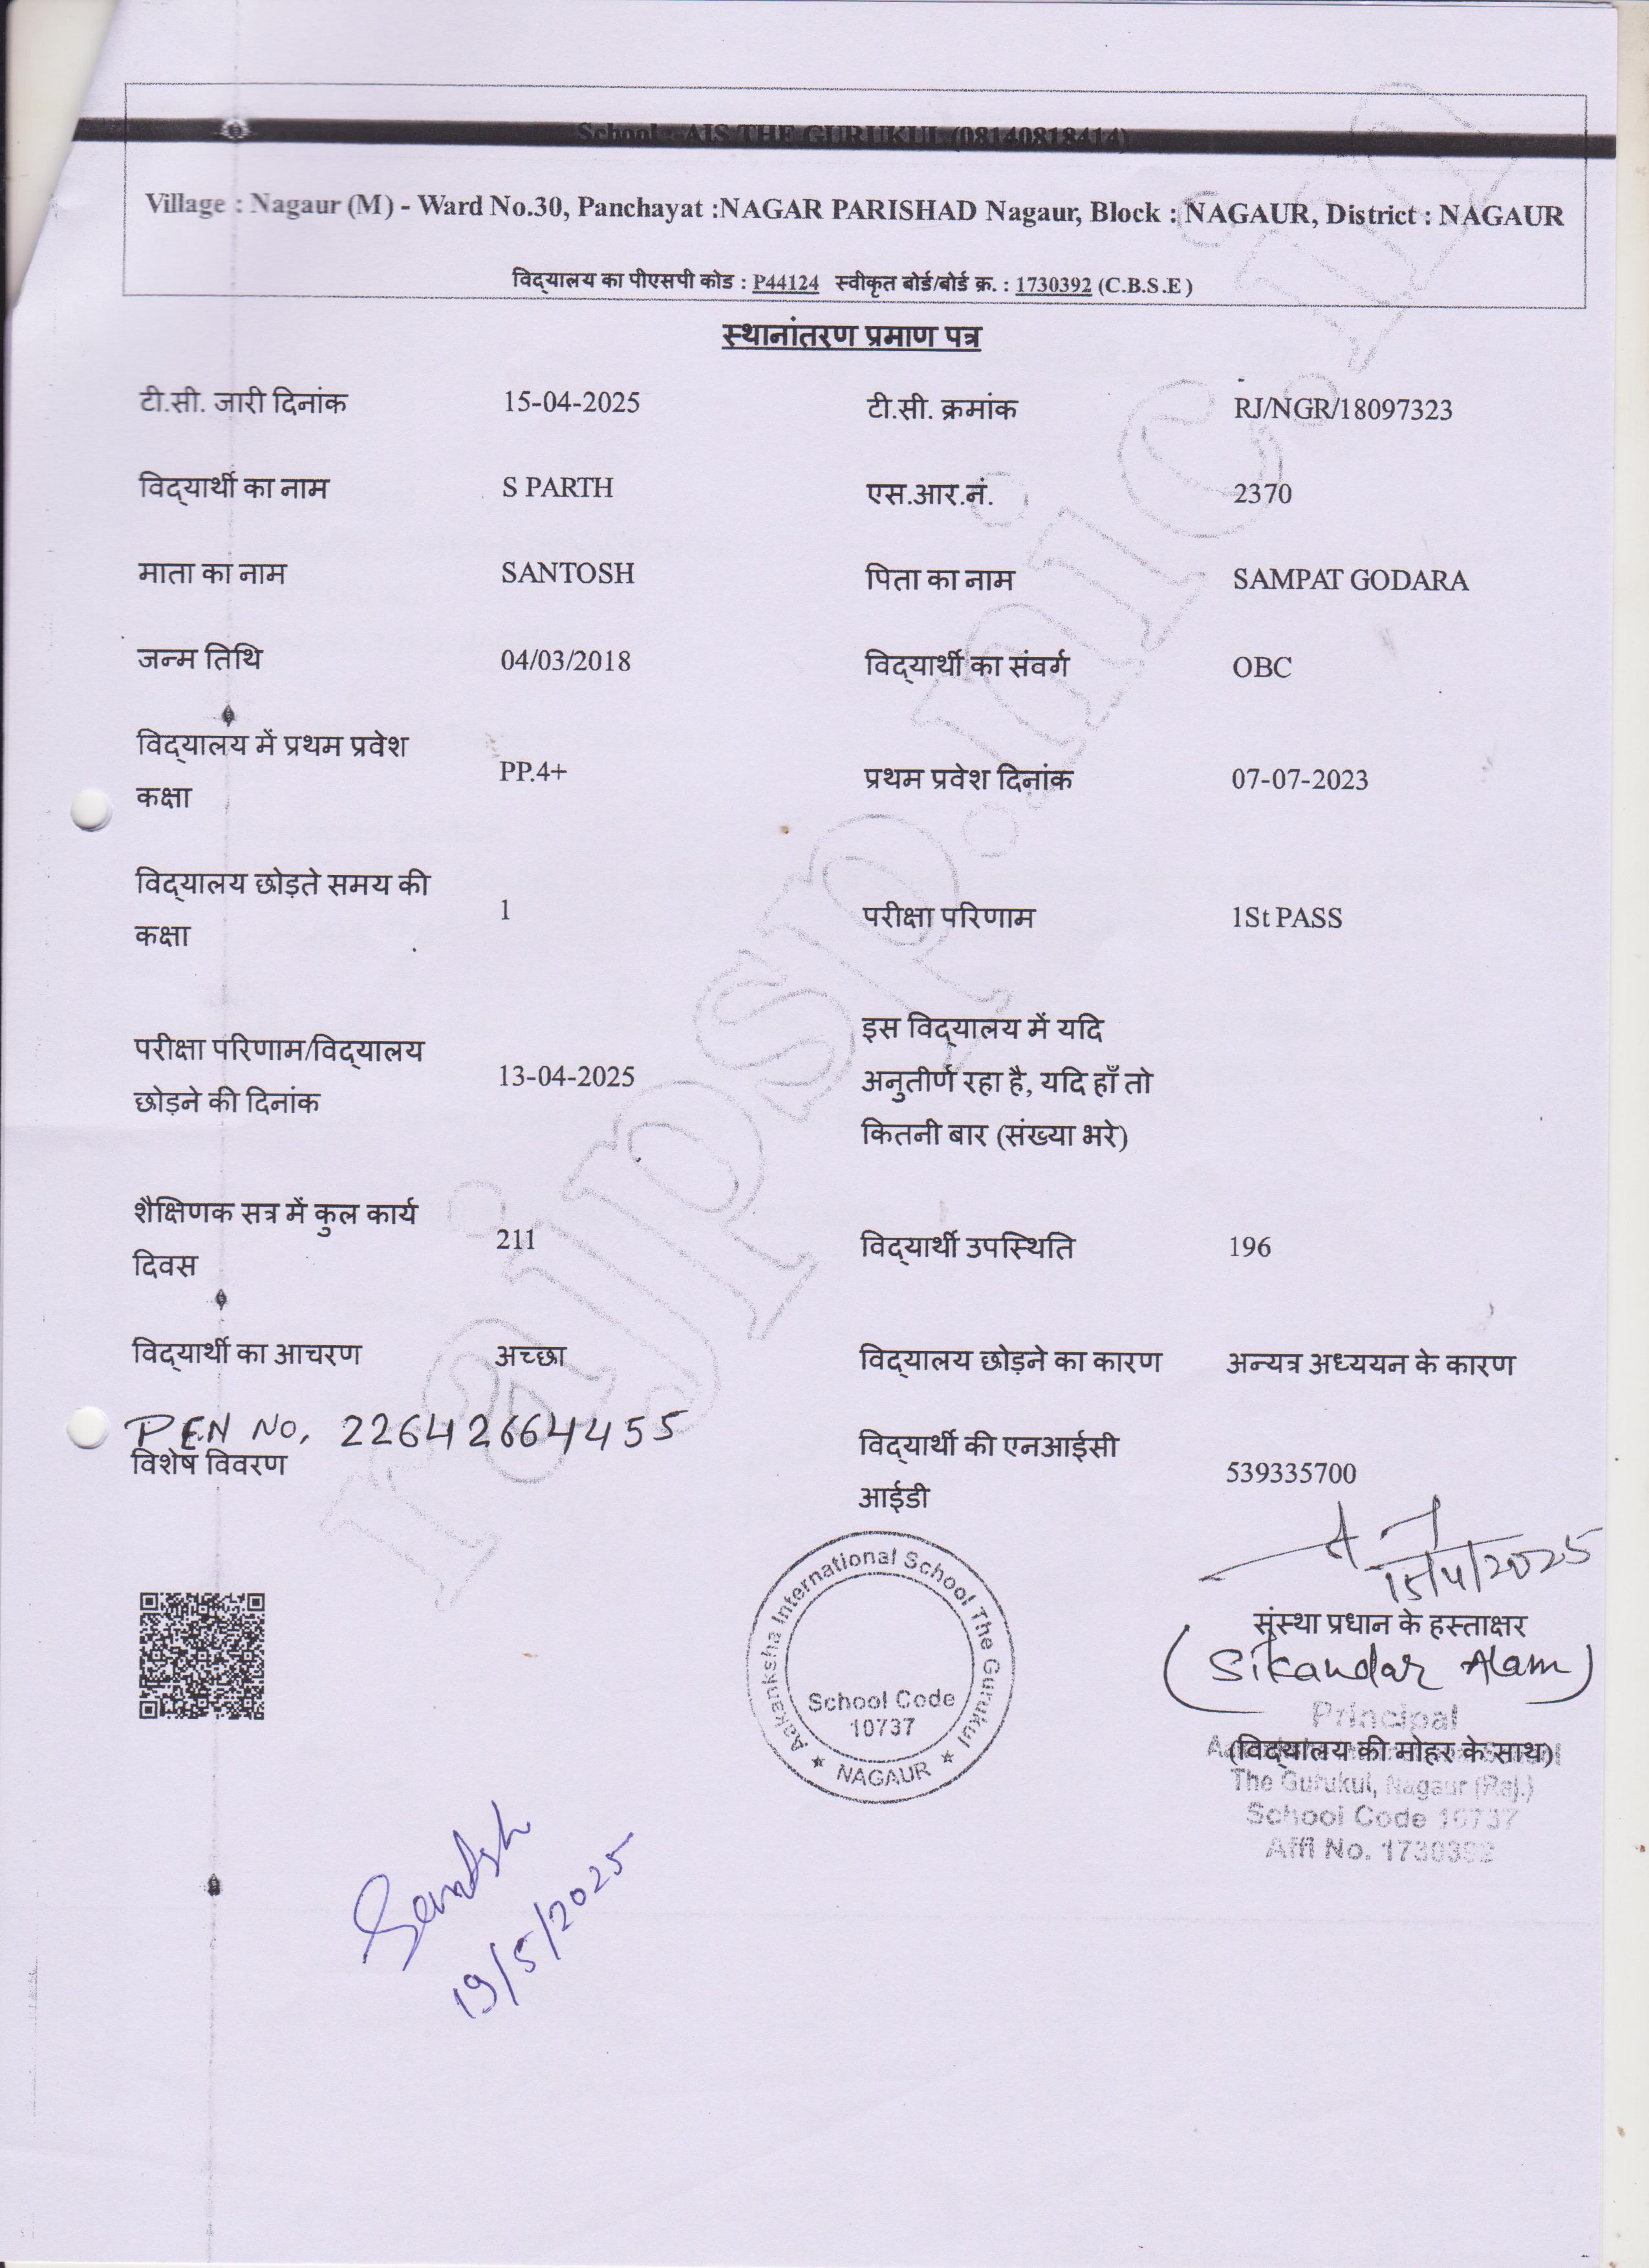 School : AIS THE GURUKUL (08140818414)
Village : Nagaur (M) - Ward No.30, Panchayat :NAGAR PARISHAD Nagaur, Block : NAGAUR, District : NAGAUR
विद्यालय का पीएसपी कोड : P44124 स्वीकृत बोर्ड/बोर्ड क्र. : 1730392 (C.B.S.E)
स्थानांतरण प्रमाण पत्र
टी.सी. जारी दिनांक 15-04-2025 टी.सी. क्रमांक RJ/NGR/18097323
विद्यार्थी का नाम S PARTH एस.आर.नं. 2370
माता का नाम SANTOSH पिता का नाम SAMPAT GODARA
जन्म तिथि 04/03/2018 विद्यार्थी का संवर्ग OBC
विद्यालय में प्रथम प्रवेश
कक्षा
PP.4+
प्रथम प्रवेश दिनांक 07-07-2023
विद्यालय छोड़ते समय की
कक्षा
1
परीक्षा परिणाम 1St PASS
परीक्षा परिणाम/विद्यालय
छोड़ने की दिनांक
13-04-2025
इस विद्यालय में यदि
अनुतीर्ण रहा है, यदि हाँ तो
कितनी बार (संख्या भरे)
शैक्षिणक सत्र में कुल कार्य
दिवस
211
विद्यार्थी उपस्थिति 196
विद्यार्थी का आचरण अच्छा विद्यालय छोड़ने का कारण अन्यत्र अध्ययन के कारण
PEN No. 22642664455
विशेष विवरण
विद्यार्थी की एनआईसी
आईडी
539335700
15/4/2025
संस्था प्रधान के हस्ताक्षर
(Sikandar Alam)
Principal
(विद्यालय की मोहर के साथ)
The Gurukul, Nagaur (Raj.)
School Code 10737
Affi No. 1730392
Aakanksha International School The Gurukul
School Code
10737
★ NAGAUR ★
Santosh
19/5/2025
rajpsp.nic.in